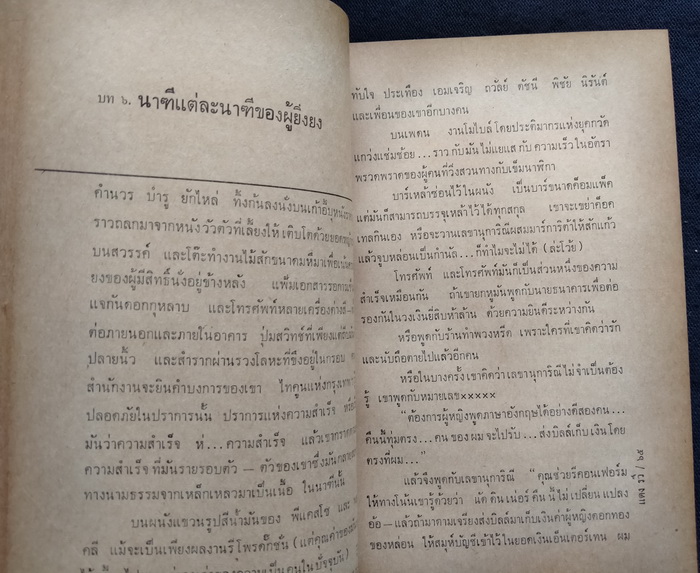 บท ๖. นาฑีแต่ละนาฑีของผู้ยิ่งยง
คำนวร บำรู ยักไหล่ ทิ้งก้นลงนั่งบนเก้าอี้บุหนัง
ราวถลกมาจากหนังวัวตัวที่เลี้ยงให้เติบโตด้วย
บนสวรรค์ และโต๊ะทำงานไม้สักขนาดมหึมา
ยงของผู้มีสิทธิ์นั่งอยู่ข้างหลัง แฟ้มเอกสารรอ
แจกันดอกกุหลาบ และโทรศัพท์หลายเครื่อง
ต่อภายนอกและภายในอาคาร ปุ่มสวิทช์ที่เพียง
ปลายนิ้ว และสำรากผ่านรวงโลหะที่ขึงอยู่ในกรอบ
สำนักงานจะยินคำบงการของเขา ไทคูนแห่งกรุงเทพ
ปลอดภัยในปราการนั้น ปราการแห่งความสำเร็จ
มันว่าความสำเร็จ ห่...ความสำเร็จ แล้วเขากราด
ความสำเร็จ ที่มันรายรอบตัว — ตัวของเขาซึ่งมัน
ทางนามธรรมจากเหล็กเหลวมาเป็นเนื้อ ในนาฑีนั้น
บนผนังแขวนรูปสีน้ำมันของ ปิแคสโซ และ
คลี แม้จะเป็นเพียงผลงานรีโพรดักชั่น (แต่คุณค่าของ
ความเป็นคนในปัจจุบัน)
ทับใจ ประเทือง เอมเจริญ ถวัลย์ ดัชนี พิชัย นิรันต์
และเพื่อนของเขาอีกบางคน
บนเพดาน งานโมไบล์ โดยประติมากรแห่งยุคกวัด
แกว่งแช่มช้อย...ราว กับมันไม่แยแส กับ ความเร็วในอัตรา
พรวดพราดของผู้คนที่วิ่งสวนทางกับเข็มนาฬิกา
บาร์เหล้าซ่อนไว้ในผนัง เป็นบาร์ขนาดค็อมแพ็ค
แต่มันก็สามารถบรรจุเหล้าไว้ได้ทุกสกุล เขาจะเขย่าค็อค
เทลกินเอง หรือจะวานเลขานุการิณีผสมมาร์การ์ต้าให้สักแก้ว
แล้วจูบหล่อนเป็นกำนัล...ก็ทำไมจะไม่ได้ (ล่ะโว้ย)
โทรศัพท์ และโทรศัพท์มันก็เป็นส่วนหนึ่งของความ
สำเร็จเหมือนกัน ถ้าเขายกหูมันพูดกับนายธนาคารเพื่อต่อ
รองกันในวงเงินยี่สิบห้าล้าน ด้วยความยินดีระหว่างกัน
หรือพูดกับร้านทำพวงหรีด เพราะใครที่เขาคิดว่ารัก
และนับถือตายไปแล้วอีกคน
หรือในบางครั้ง เขาคิดว่าเลขานุการิณีไม่จำเป็นต้อง
รู้ เขาพูดกับหมายเลข×××××
“ต้องการผู้หญิงพูดภาษาอังกฤษได้อย่างดีสองคน...
คืนนี้ทุ่มตรง...คน ของ ผมจะไปรับ...ส่งบิลล์เก็บ เงินโดย
ตรงที่ผม...”
แล้วจึงพูดกับเลขานุการิณี “คุณช่วยรีคอนเฟอร์ม
ให้ทางโน้นเขารู้ด้วยว่า แด๊ ดินเน่อร์ คืน นี้ ไม่ เปลี่ยน แปลง
อ้อ — แล้วถ้ามาดามเจรียงส่งบิลล์มาเก็บเงินค่าผู้หญิงดอกทอง
ของหล่อน ให้สมุห์บัญชีเข้าไว้ในยอดเงินเอ็นเตอร์เทน ผม
แดง รวี / ๖๕